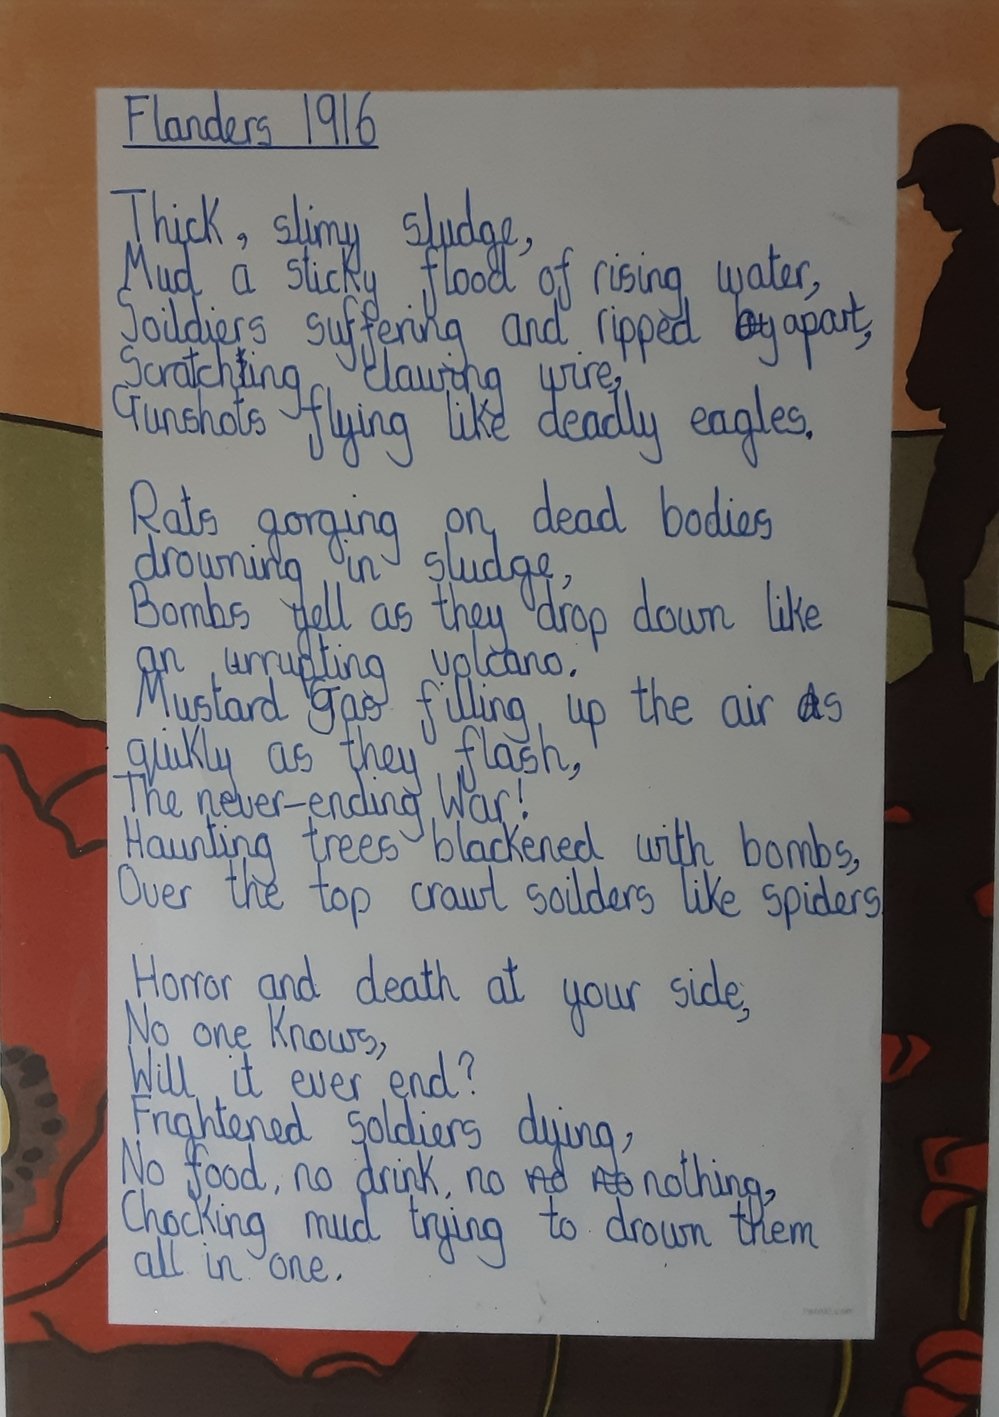 Flanders 1916
Thick, slimy sludge,
Mud a sticky flood of rising water,
Soildiers suffering and ripped apart,
Scratching clawing wire,
Gunshots flying like deadly eagles.
Rats gorging on dead bodies
drowning in sludge,
Bombs yell as they drop down like
an urrupting volcano.
Mustard gas filling up the air as
quikly as they flash,
The never-ending War!
Haunting trees blackened with bombs,
Over the top crawl soilders like spiders.
Horror and death at your side,
No one Knows,
Will it ever end?
Frightened soldiers dying,
No food, no drink, no nothing,
Chocking mud trying to drown them
all in one.